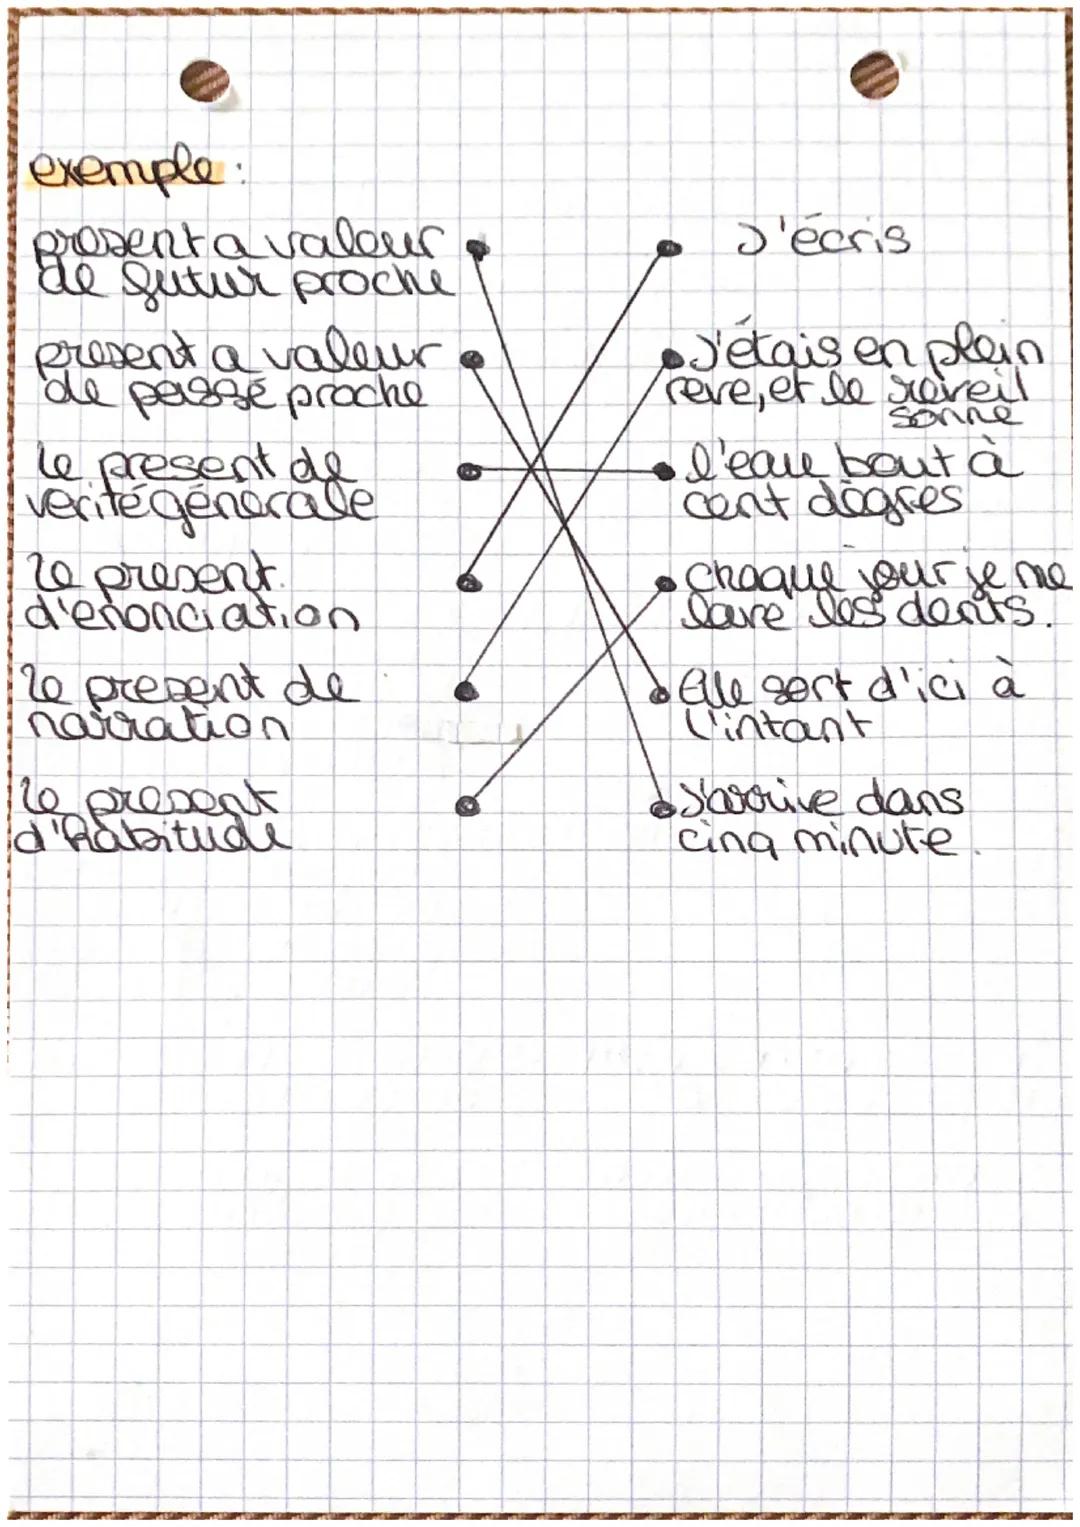 exemple :
present a valeur
de futur proche
present a valeur
de passé proche
le present de
verité génerale
le present
d'enonciation
le present de
narration
le present
d'habitude
J'écris
J'étais en plein
reve, et le reveil
sonne
l'eau bout à
cent dègres
chaque jour je me
lave les dents.
Elle sort d'ici à
l'intant
J'arrive dans
cinq minute.